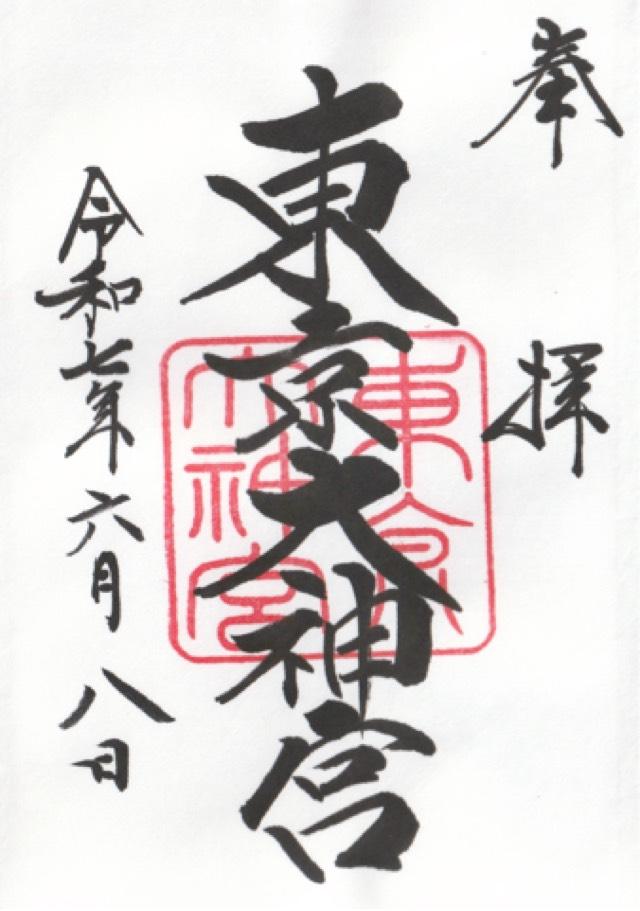 奉拝
東京大神宮
東京
大神宮
令和七年六月八日